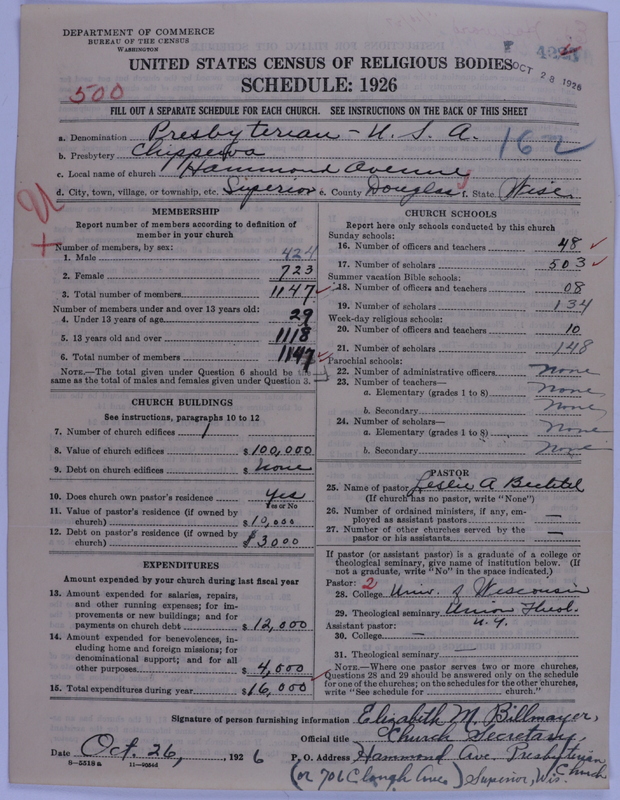 DEPARTMENT OF COMMERCE
BUREAU OF THE CENSUS
WASHINGTON
UNITED STATES CENSUS OF RELIGIOUS BODIES
OCT 28 1926
SCHEDULE: 1926
500
FILL OUT A SEPARATE SCHEDULE FOR EACH CHURCH. SEE INSTRUCTIONS ON THE BACK OF THIS SHEET
a. Denomination Presbyterian - U. S. A.
162
b. Presbytery Chippewa
c. Local name of church Hammond Avenue
d. City, town, village, or township, etc. Superior e. County Douglas f. State Wisc.
MEMBERSHIP
Report number of members according to definition of member in your church
Number of members, by sex:
1. Male 424
2. Female 723
3. Total number of members 1147
Number of members under and over 13 years old:
4. Under 13 years of age 29
5. 13 years old and over 1118
6. Total number of members 1147
NOTE.—The total given under Question 6 should be the
same as the total of males and females given under Question 3.
CHURCH BUILDINGS
See instructions, paragraphs 10 to 12
7. Number of church edifices 1
8. Value of church edifices $100,000
9. Debt on church edifices $ None
10. Does church own pastor's residence Yes
Yes or No
11. Value of pastor's residence (if owned by
church) $10,000
12. Debt on pastor's residence (if owned by
church) $3000
EXPENDITURES
Amount expended by your church during last fiscal year
13. Amount expended for salaries, repairs,
and other running expenses; for im-
provements or new buildings; and for
payments on church debt $12,000
14. Amount expended for benevolences, in-
cluding home and foreign missions; for
denominational support; and for all
other purposes $4,000
15. Total expenditures during year $16,000
CHURCH SCHOOLS
Report here only schools conducted by this church
Sunday schools:
16. Number of officers and teachers 48
17. Number of scholars 503
Summer vacation Bible schools:
18. Number of officers and teachers 08
19. Number of scholars 134
Week-day religious schools:
20. Number of officers and teachers 10
21. Number of scholars 148
Parochial schools:
22. Number of administrative officers None
23. Number of teachers—
a. Elementary (grades 1 to 8) None
b. Secondary None
24. Number of scholars—
a. Elementary (grades 1 to 8) None
b. Secondary None
PASTOR
25. Name of pastor Leslie A Bechtel
(If church has no pastor, write "None")
26. Number of ordained ministers, if any, em-
ployed as assistant pastors —
27. Number of other churches served by the
pastor or his assistants —
If pastor (or assistant pastor) is a graduate of a college or
theological seminary, give name of institution below. (If
not a graduate, write "No" in the space indicated.)
Pastor: 2
28. College Univ. of Wisconsin
29. Theological seminary Union Theol.
Assistant pastor: N.Y.
30. College —
31. Theological seminary —
NOTE.—Where one pastor serves two or more churches,
Questions 28 and 29 should be answered only on the schedule
for one of the churches; on the schedules for the other churches,
write "See schedule for church."
Signature of person furnishing information Elizabeth M. Billmayer,
Official title Church Secretary,
Date Oct. 26, 1926 P. O. Address Hammond Ave. Presbyterian Church
8—5518a 11—9054d
(or 706 Clough Ave.) Superior, Wis.